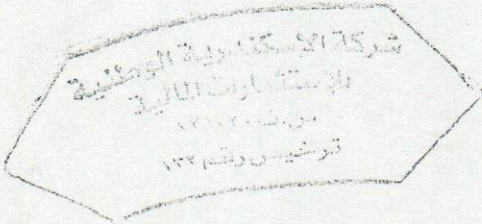 شركة الإسكندرية الوطنية
للإستثمارات المالية
س.ت
ترخيص رقم ١٣٢